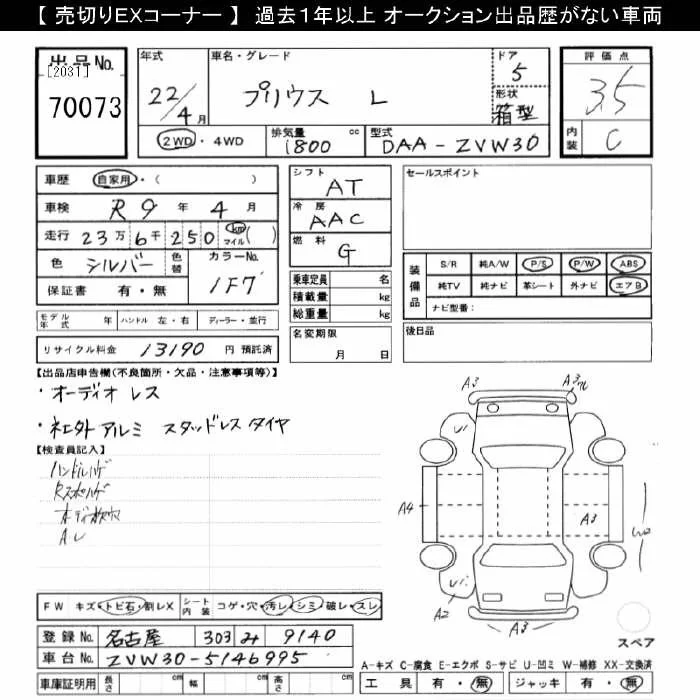 【 売切りEXコーナー 】 過去1年以上 オークション出品歴がない車両
出品No.
[2031]
70073
年式
22/4月
車名・グレード
プリウス L
ドア
5
形状
箱型
2WD・4WD
排気量
1800 cc
型式
DAA-ZVW30
評価点
3.5
内装
C
車歴 自家用・( )
車検 R9 年 4 月
走行 23万 6千 250 km マイル( )
色 シルバー 色替 カラーNo. 1F7
保証書 有・無
モデル年式 年 ハンドル 左・右 ディーラー・並行
リサイクル料金 13190 円 預託済
シフト
AT
冷房
AAC
燃料
G
乗車定員 名
積載量 kg
総重量 kg
名変期限
月 日
セールスポイント
装備品
S/R 純A/W P/S P/W ABS
純TV 純ナビ 革シート 外ナビ エアB
ナビ型番:
後日品
【出品店申告欄(不良箇所・欠品・注意事項等)】
・オーディオレス
・社外アルミ スタッドレスタイヤ
【検査員記入】
ハンドルハゲ
AL
FW キズ・トビ石・割レX シート内装 コゲ・穴・汚レ・シミ・破レ・スレ
登録No. 名古屋 303 み 9140
車台No. ZVW30-5146995
車庫証明用 長さ cm 幅 cm 高さ cm
A3
A3
U1
A4
A3
U1
A2
A3
スペア
A-キズ C-腐食 E-エクボ S-サビ U-凹ミ W-補修 XX-交換済
工具 有・無 ジャッキ 有・無